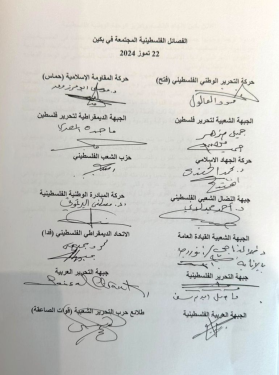 الفصائل الفلسطينية المجتمعة في بكين
22 تموز 2024
حركة التحرير الوطني الفلسطيني (فتح)
محمود العالول
حركة المقاومة الإسلامية (حماس)
د. موسى أبو مرزوق
الجبهة الشعبية لتحرير فلسطين
جميل مزهر
الجبهة الديمقراطية لتحرير فلسطين
حركة الجهاد الإسلامي
د. محمد الهندي
حزب الشعب الفلسطيني
جبهة النضال الشعبي الفلسطيني
د. أحمد مجدلاني
حركة المبادرة الوطنية الفلسطينية
د. مصطفى البرغوثي
الجبهة الشعبية القيادة العامة
الاتحاد الديمقراطي الفلسطيني (فدا)
جبهة التحرير الفلسطينية
واصل أبو يوسف
جبهة التحرير العربية
الجبهة العربية الفلسطينية
طلائع حرب التحرير الشعبية (قوات الصاعقة)